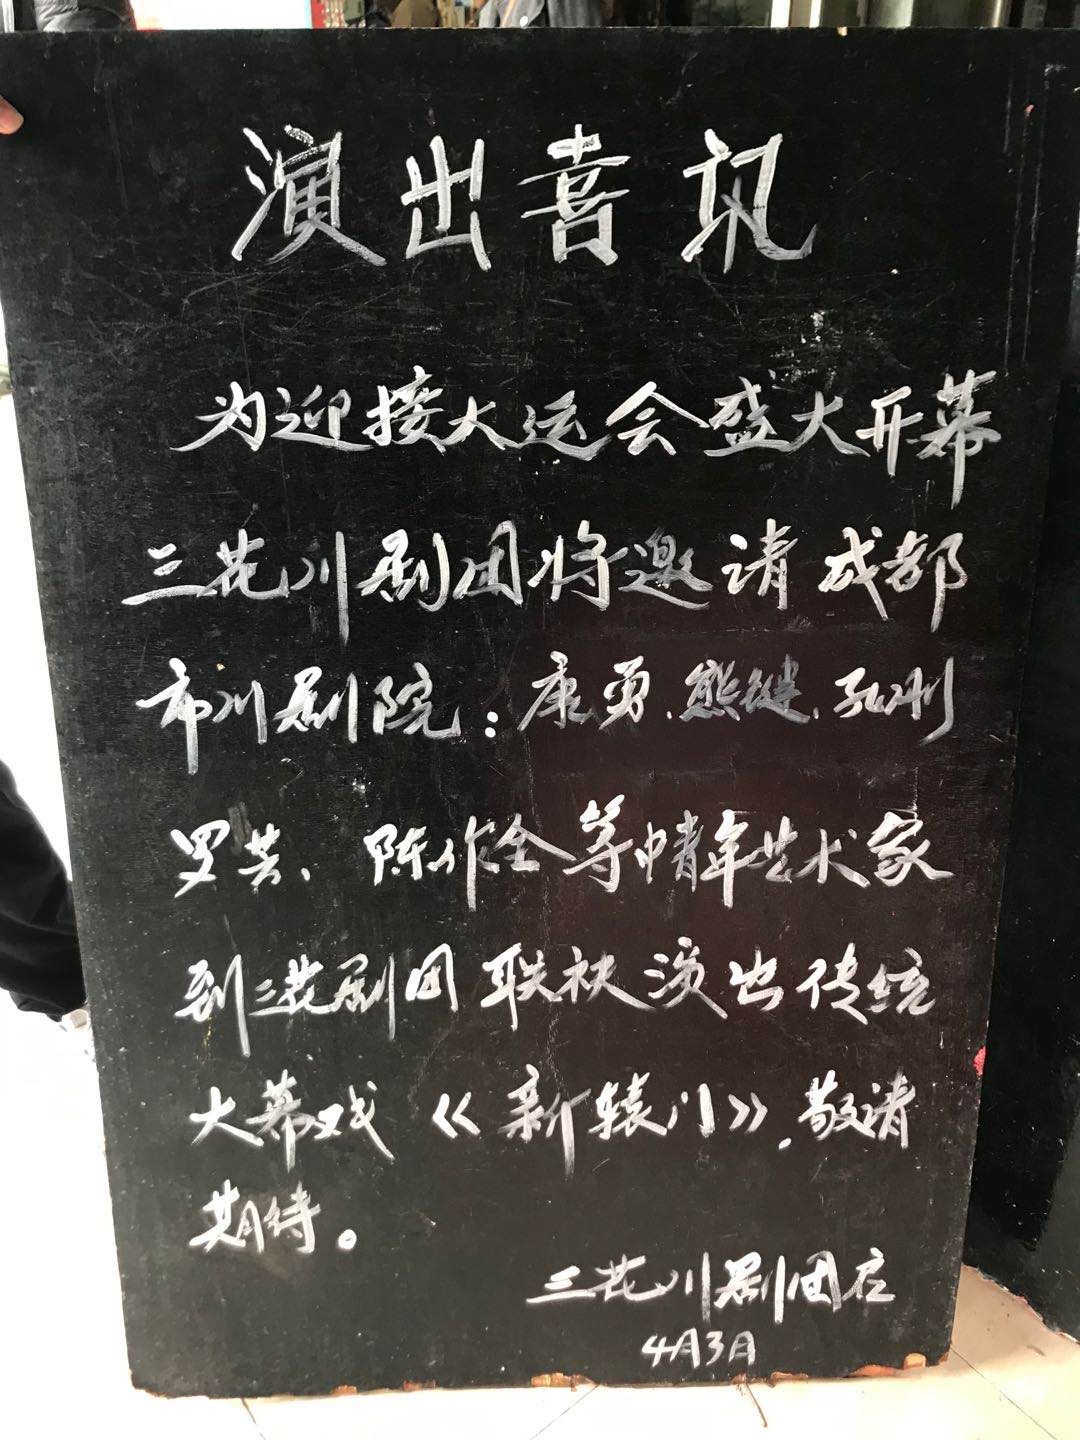 演出喜讯
为迎接大运会盛大开幕
三花川剧团将邀请成都
市川剧院：康勇、熊健、孔刚
罗芸、陈作全等中青年艺术家
到三花剧团联袂演出传统
大幕戏《新辕门》，敬请
期待。
三花川剧团启
4月3日